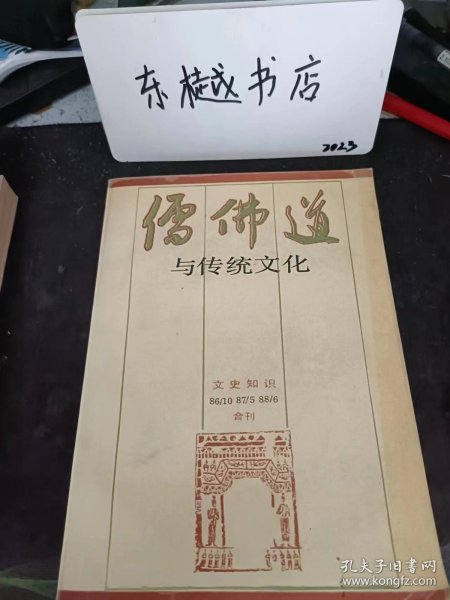 东樾书店
2023
儒佛道
与传统文化
文史知识
86/10 87/5 88/6
合刊
孔夫子旧书网
www.kongfz.com